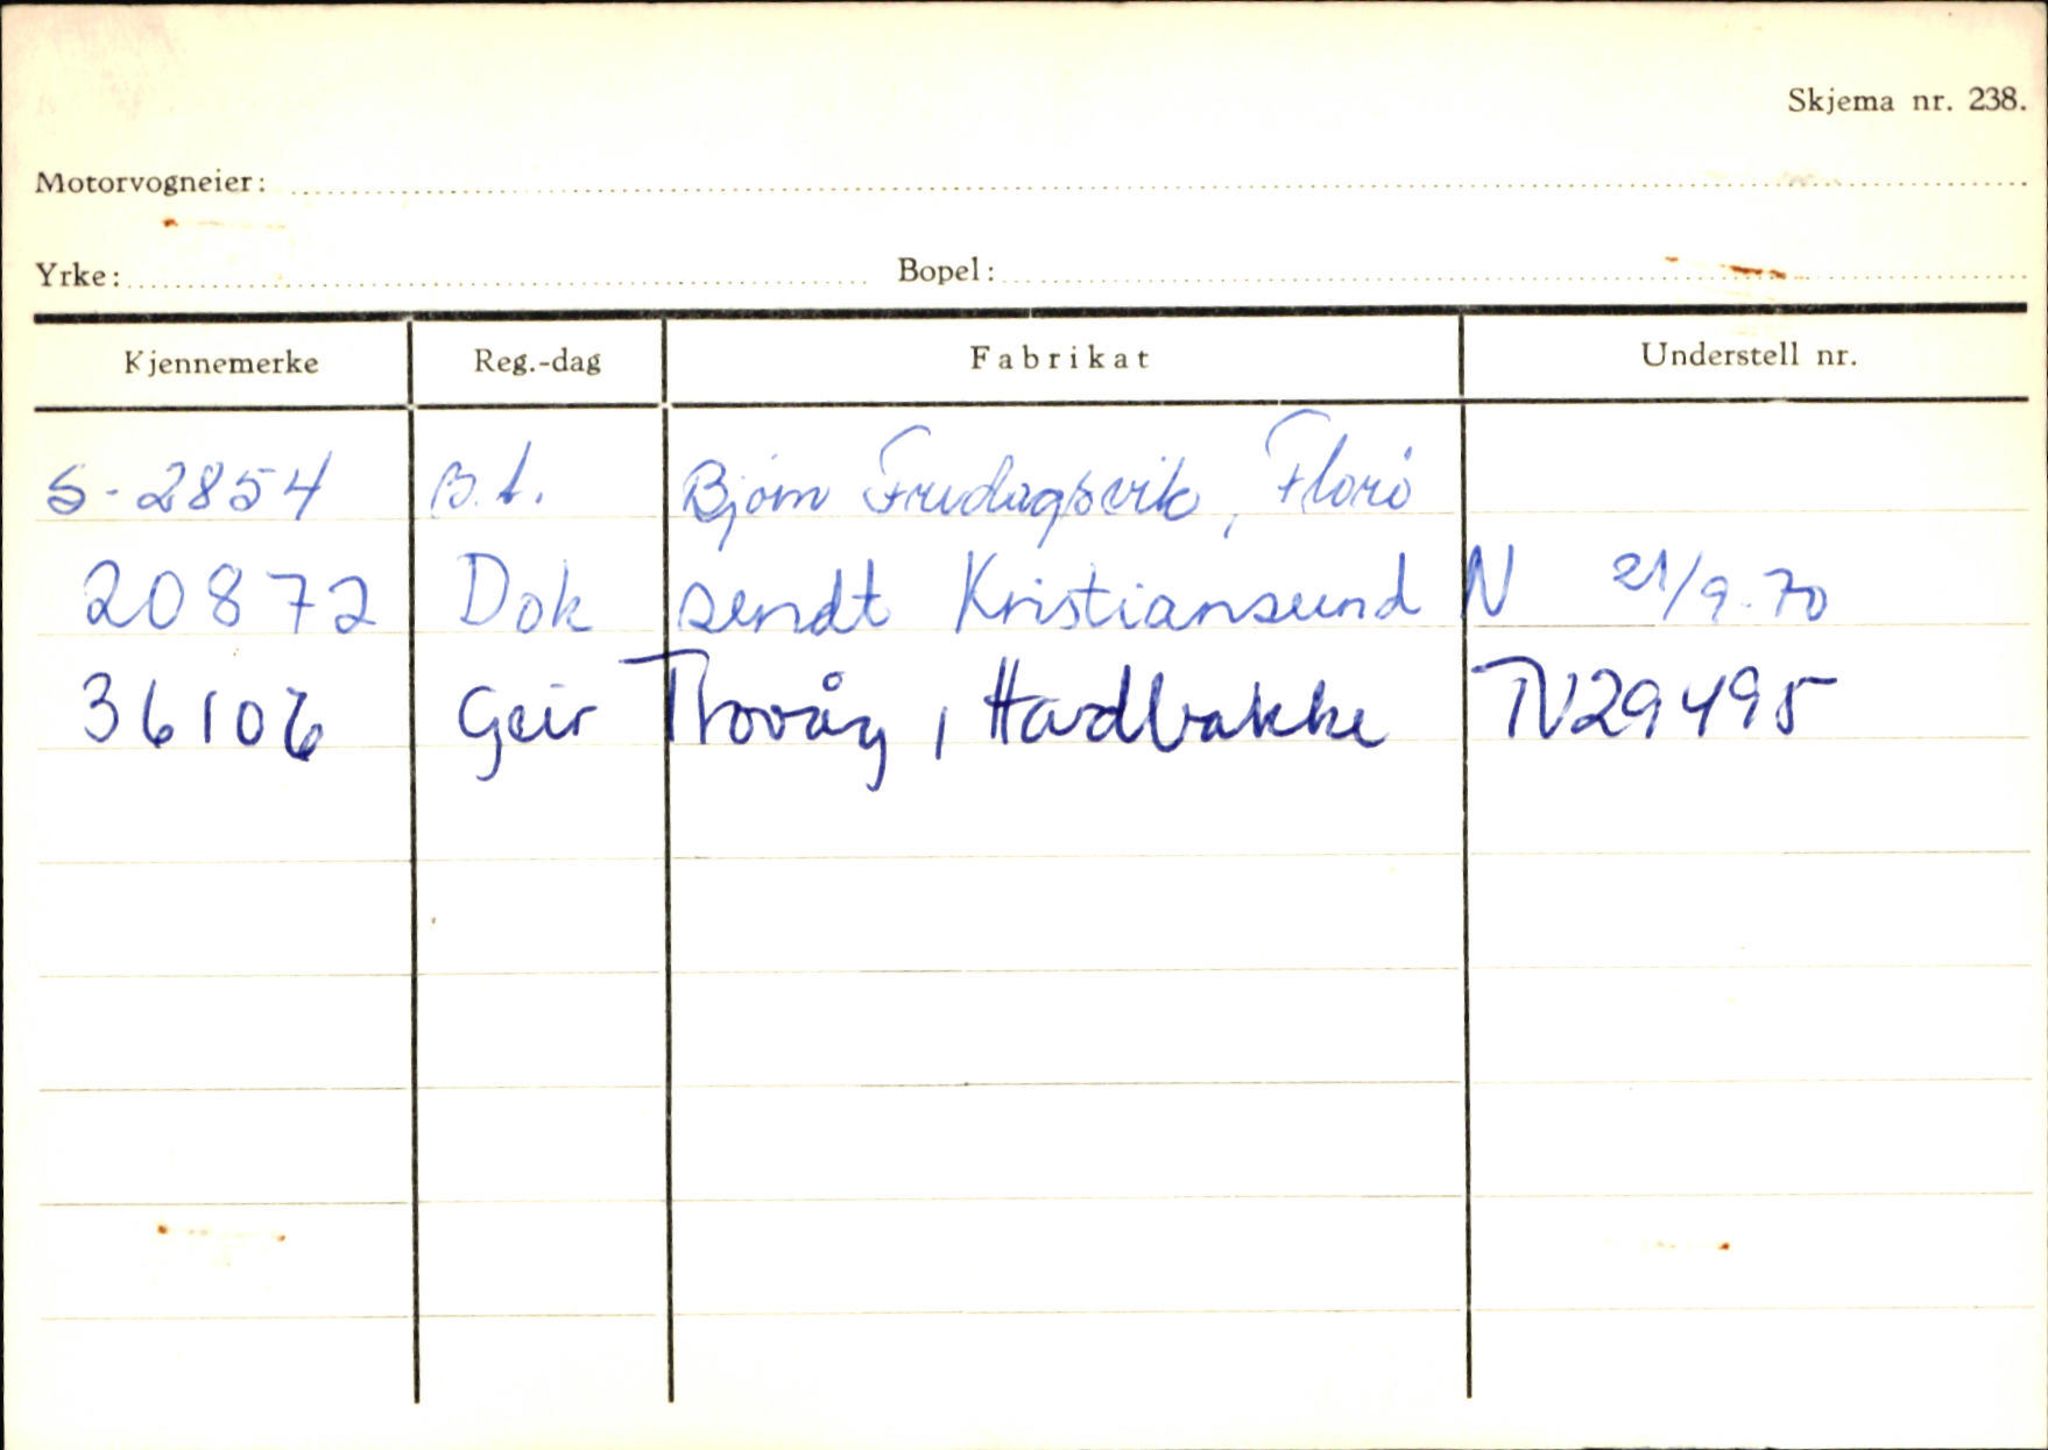 Skjema nr. 238.
Motorvogneier:
Yrke: Bopel:
Kjennemerke Reg.-dag Fabrikat Understell nr.
S-2854 B.t. Bjørn Fredagsvik, Florø
20872 Dok sendt Kristiansund N 21/9-70
36106 Geir Trovåg, Hardbakke TV29495